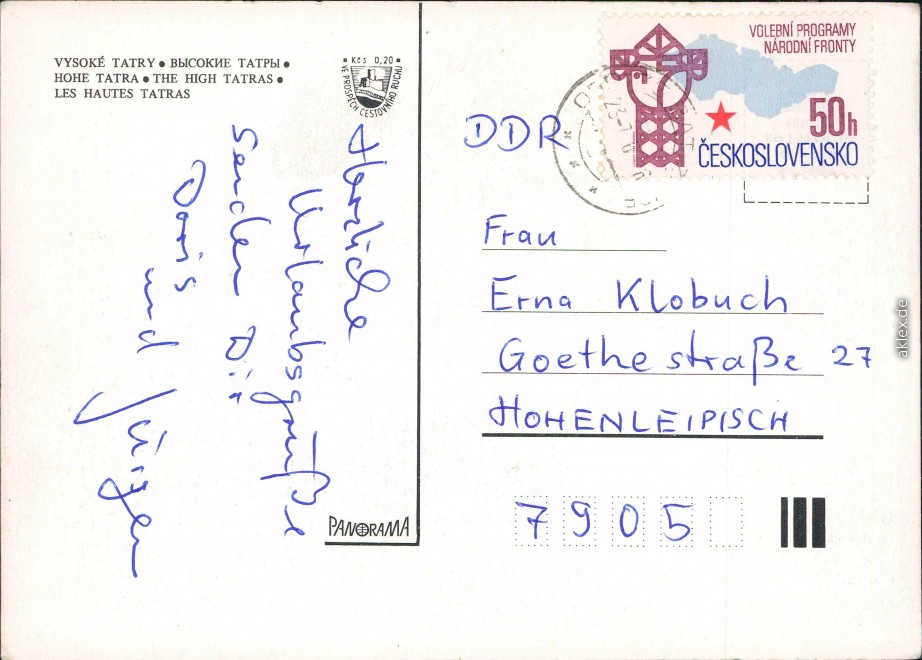 VYSOKÉ TATRY • ВЫСОКИЕ ТАТРЫ •
HOHE TATRA • THE HIGH TATRAS •
LES HAUTES TATRAS
Kčs 0,20
VE PROSPĚCH CESTOVNÍHO RUCHU
Herzliche
Urlaubsgrüße
senden Dir
Doris
und Jürgen
PANORAMA
VOLEBNÍ PROGRAMY
NÁRODNÍ FRONTY
50h
ČESKOSLOVENSKO
DDR
Frau
Erna Klobuch
Goethestraße 27
HOHENLEIPISCH
7905
aklex.de